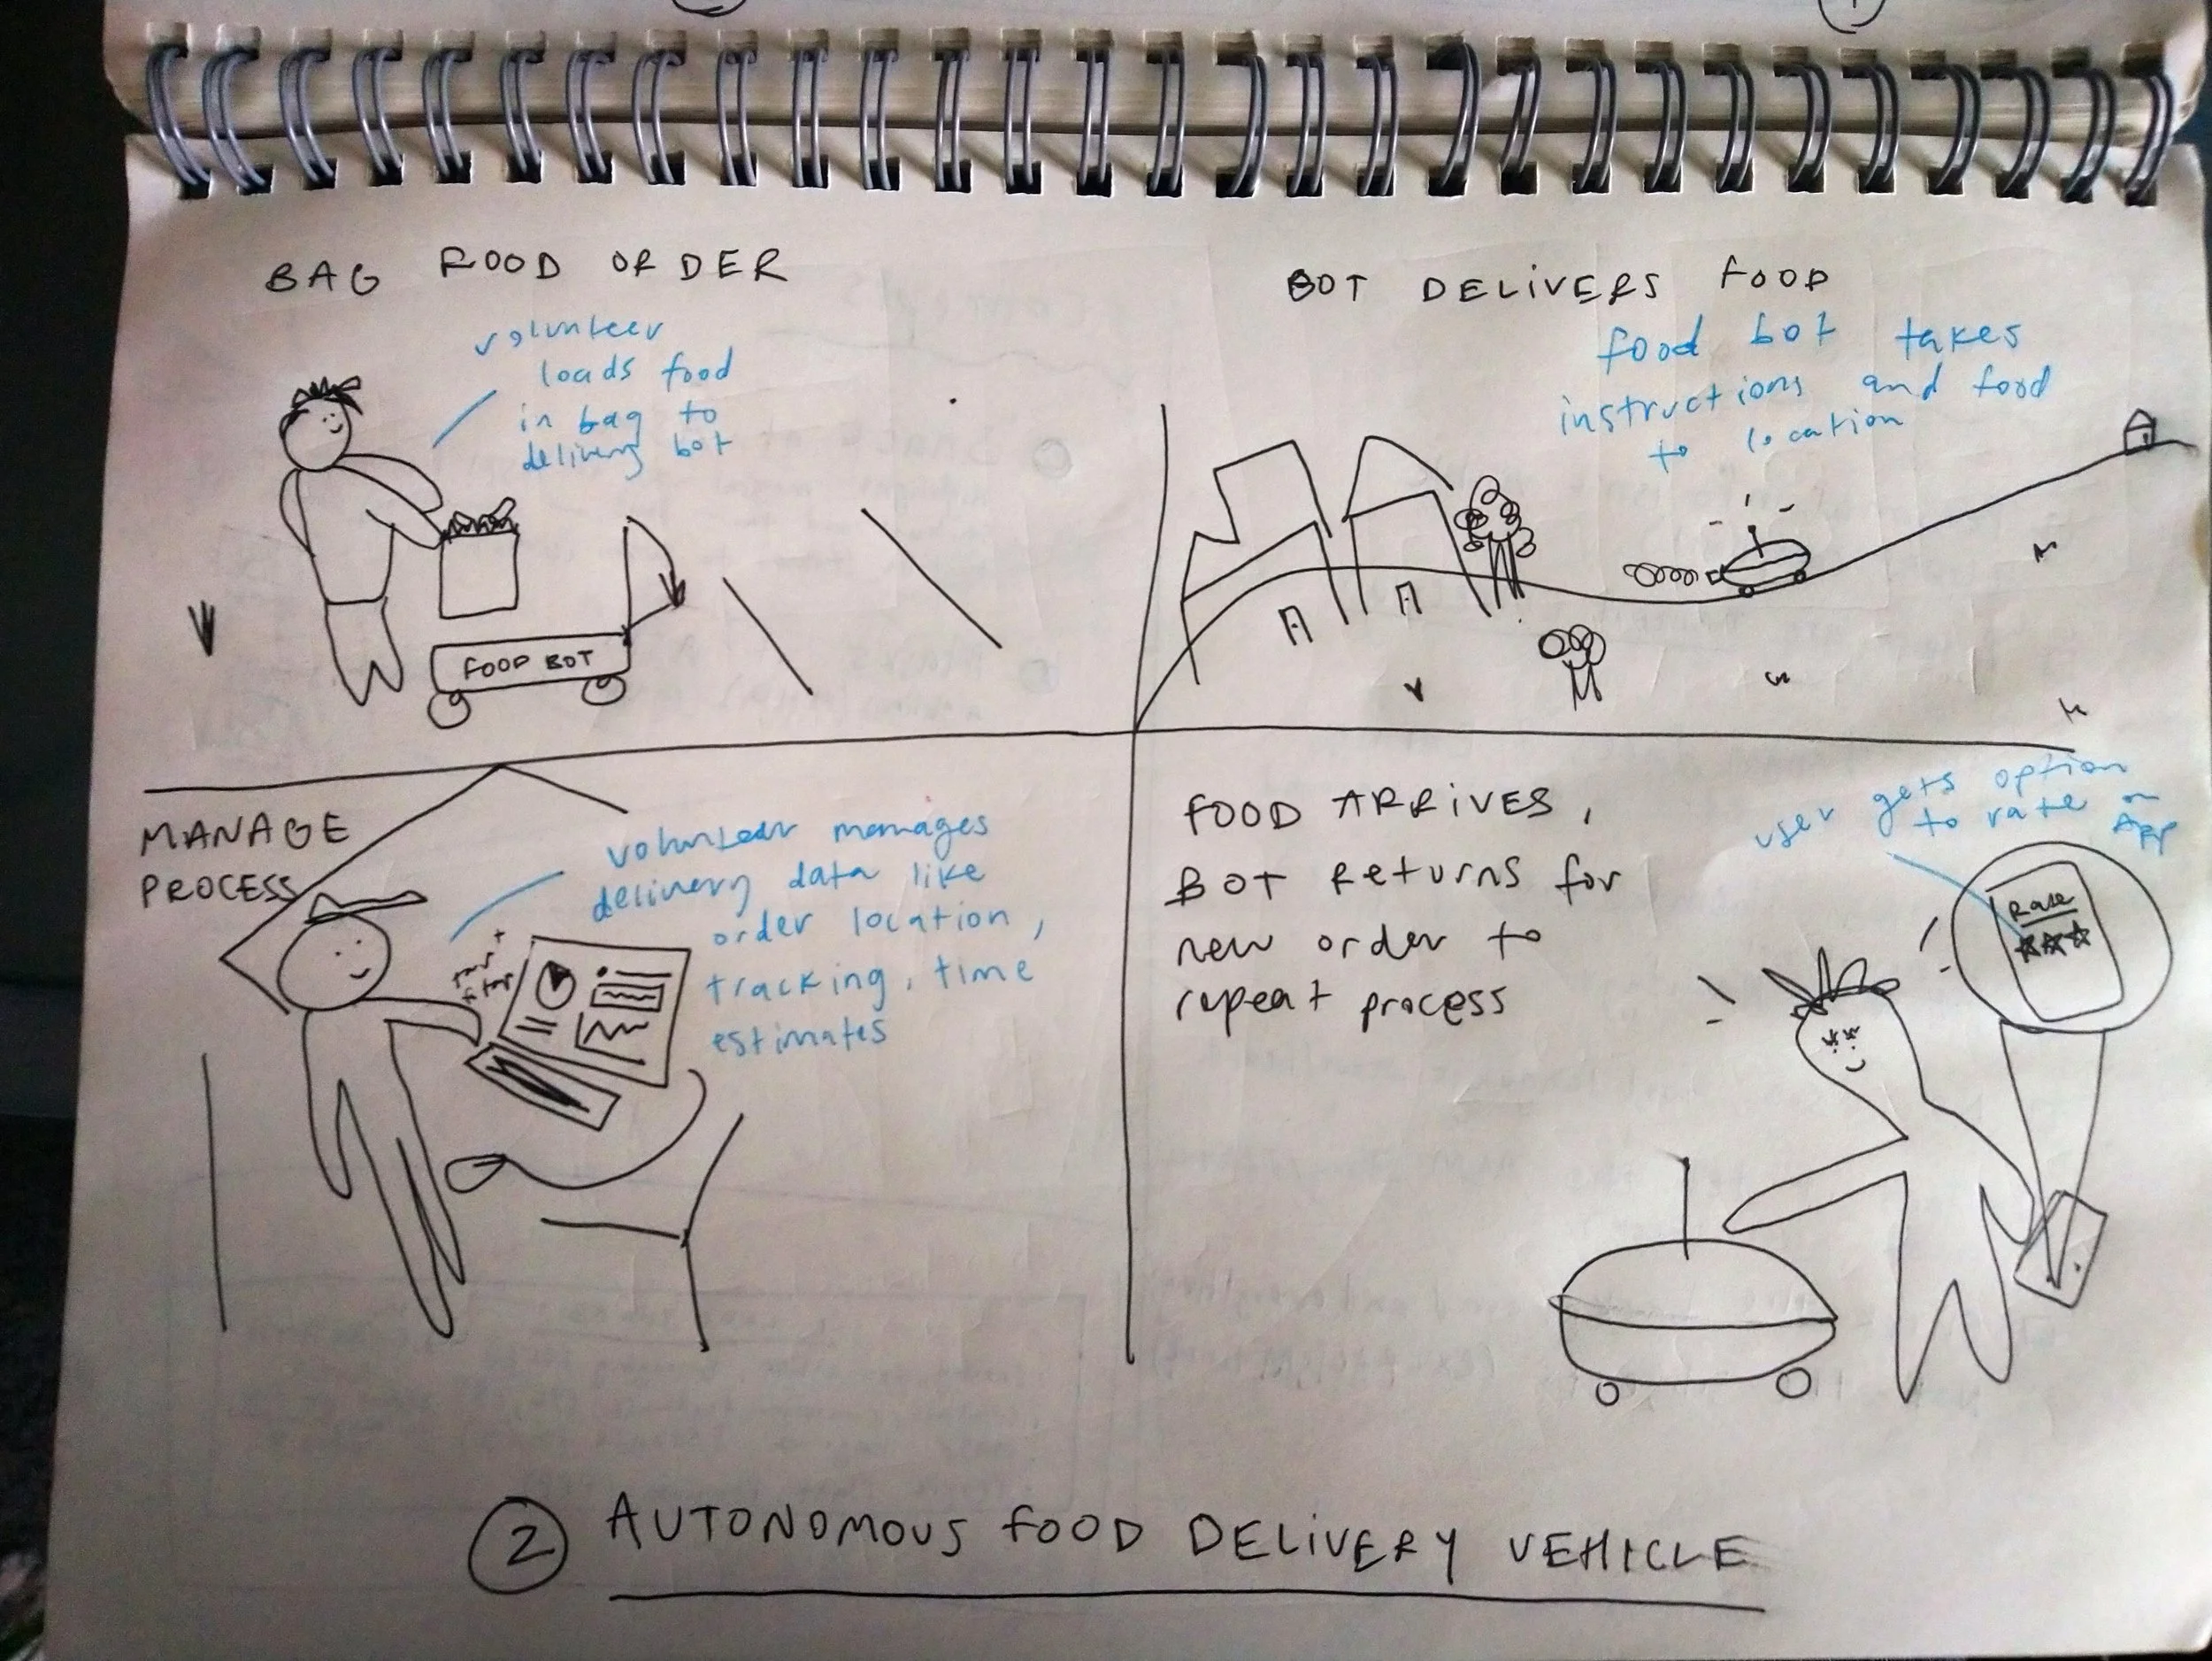 BAG FOOD ORDER
volunteer
loads food
in bag to
delivery bot
FOOD BOT
BOT DELIVERS FOOD
food bot takes
instructions and food
to location
MANAGE
PROCESS
volunteer manages
delivery data like
order location,
tracking, time
estimates
FOOD ARRIVES,
BOT Returns for
new order to
repeat process
user gets option
to rate on
App
Rate
② AUTONOMOUS FOOD DELIVERY VEHICLE